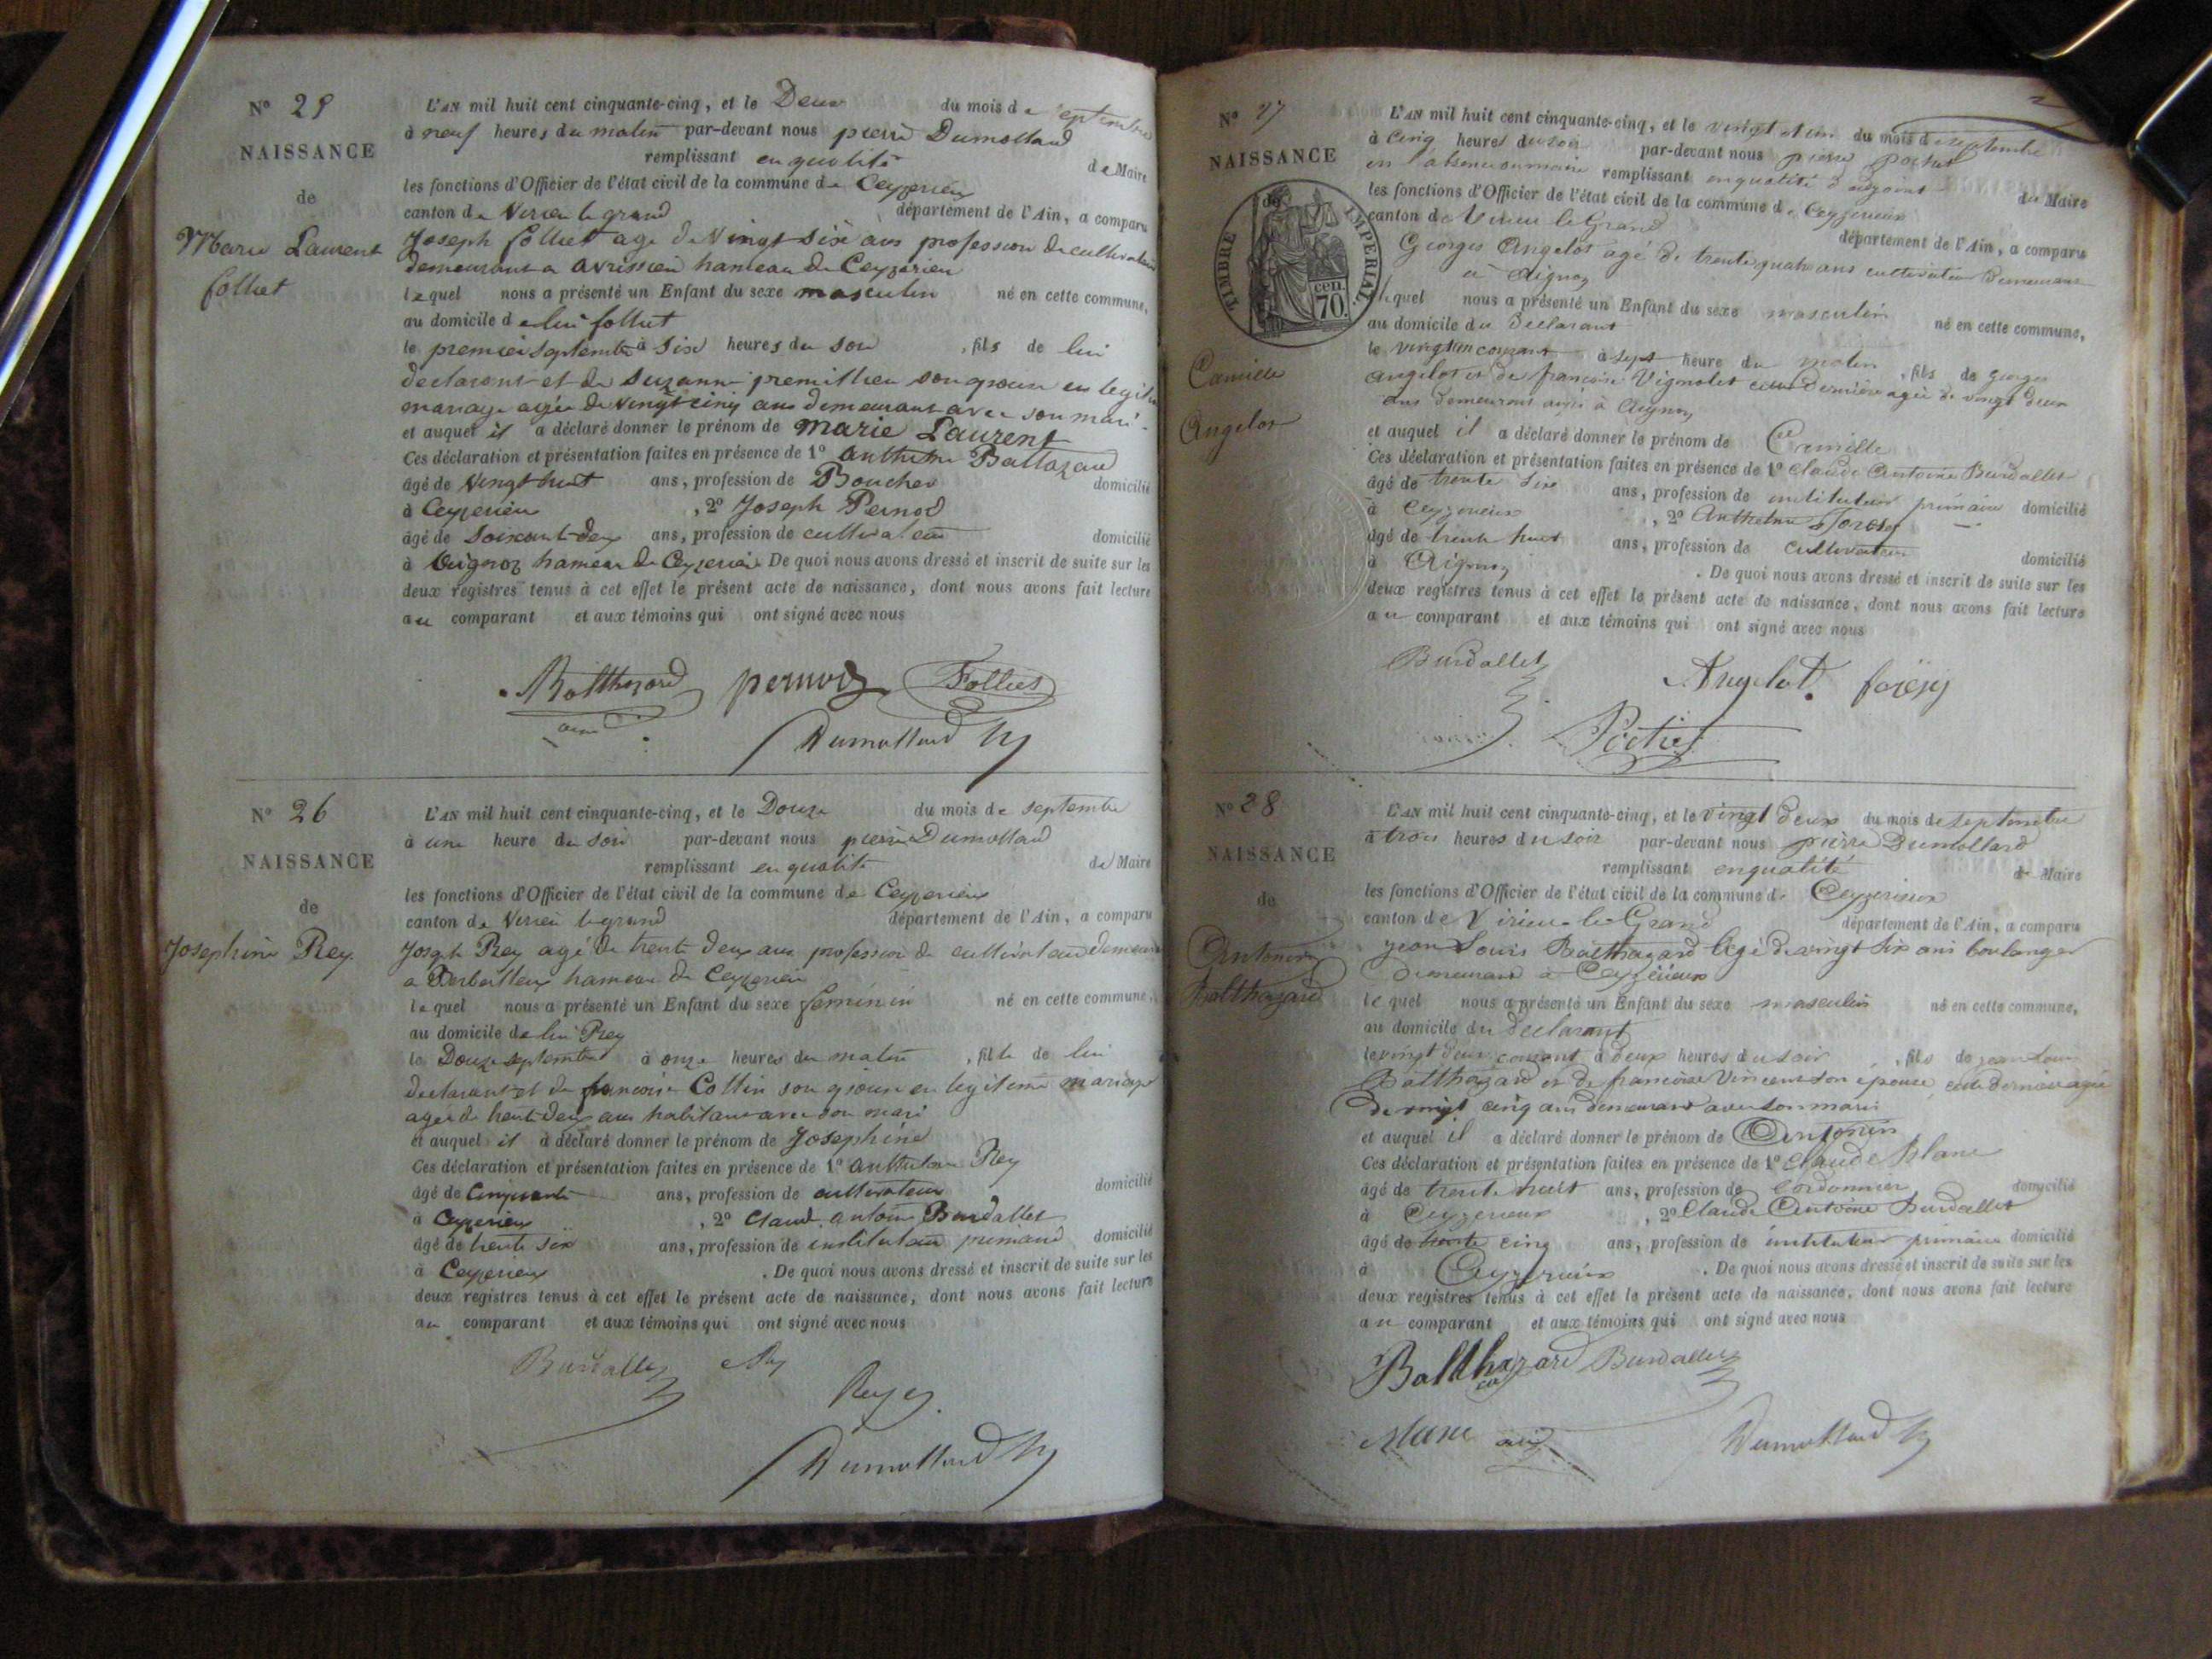 N° 25
NAISSANCE
de
Marie Laurent
folliet
L'AN mil huit cent cinquante-cinq, et le Deux du mois de septembre
à neuf heures du matin par-devant nous pierre Dumollard
remplissant en qualité de Maire
les fonctions d'Officier de l'état civil de la commune de Ceyzerieu
canton de Virieu le grand département de l'Ain, a comparu
Joseph folliet agé de Vingt six ans profession de cultivateur
demeurant a avrissieu hameau de Ceyzerieu
lequel nous a présenté un Enfant du sexe masculin né en cette commune,
au domicile de lui folliet
le premier septembre à six heures du soir, fils de lui
declarant et de Suzanne premillieu son epouse en legitime
mariage agée de vingt cinq ans demeurant avec son mari
et auquel il a déclaré donner le prénom de Marie Laurent
Ces déclaration et présentation faites en présence de 1° anthelme Baltazard
âgé de Vingt huit ans, profession de Boucher domicilié
à Ceyzerieu, 2° Joseph Pernod
âgé de Soixante deux ans, profession de cultivateur domicilié
à Aignoz hameau de Ceyzerieu De quoi nous avons dressé et inscrit de suite sur les
deux registres tenus à cet effet le présent acte de naissance, dont nous avons fait lecture
au comparant et aux témoins qui ont signé avec nous
Balthazard pernod Folliet
Dumollard
N° 26
NAISSANCE
de
Josephine Rey
L'AN mil huit cent cinquante-cinq, et le Douze du mois de septembre
à une heure du soir par-devant nous pierre Dumollard
remplissant en qualité de Maire
les fonctions d'Officier de l'état civil de la commune de Ceyzerieu
canton de Virieu le grand département de l'Ain, a comparu
Joseph Rey agé de trente deux ans profession de cultivateur demeurant
a hameau de Ceyzerieu
lequel nous a présenté un Enfant du sexe feminin né en cette commune,
au domicile de lui Rey
le Douze septembre à onze heures du matin, fille de lui
declarant et de francoise Collin son epouse en legitime mariage
agée de trente deux ans habitant avec son mari
et auquel il a déclaré donner le prénom de Josephine
Ces déclaration et présentation faites en présence de 1° anthelme Rey
âgé de Cinquante ans, profession de cultivateur domicilié
à Ceyzerieu, 2° Claude antoine Burdallet
âgé de trente six ans, profession de instituteur primaire domicilié
à Ceyzerieu. De quoi nous avons dressé et inscrit de suite sur les
deux registres tenus à cet effet le présent acte de naissance, dont nous avons fait lecture
au comparant et aux témoins qui ont signé avec nous
Burdallet Rey
Rey
Dumollard
N° 27
NAISSANCE
de
TIMBRE IMPERIAL
70 cen.
Camille
Angelot
L'AN mil huit cent cinquante-cinq, et le vingt et un du mois de septembre
à cinq heures du soir par-devant nous pierre pochet
en absence du maire remplissant en qualité d'adjoint du Maire
les fonctions d'Officier de l'état civil de la commune de Ceyzerieux
canton de Virieu le Grand département de l'Ain, a comparu
Georges Angelot agé de trente quatre ans cultivateur demeurant
à Aignoz
lequel nous a présenté un Enfant du sexe masculin né en cette commune,
au domicile du declarant
le vingt un courant à sept heure du matin, fils de georges
angelot et de francoise Vignolet cette dernière agée de vingt deux
ans demeurant aussi à Aignoz
et auquel il a déclaré donner le prénom de Camille
Ces déclaration et présentation faites en présence de 1° Claude Antoine Burdallet
âgé de trente six ans, profession de instituteur primaire domicilié
à Ceyzerieux, 2° Anthelme
âgé de trente huit ans, profession de cultivateur domicilié
à Aignoz. De quoi nous avons dressé et inscrit de suite sur les
deux registres tenus à cet effet le présent acte de naissance, dont nous avons fait lecture
au comparant et aux témoins qui ont signé avec nous
Burdallet Angelot
Pochet
N° 28
NAISSANCE
de
Antonin
Balthazard
L'AN mil huit cent cinquante-cinq, et le vingt deux du mois de septembre
à trois heures du soir par-devant nous pierre Dumollard
remplissant en qualité de Maire
les fonctions d'Officier de l'état civil de la commune de Ceyzerieux
canton de Virieu-le-Grand département de l'Ain, a comparu
jean Louis Balthazard agé de vingt six ans boulanger
demeurant à Ceyzérieux
lequel nous a présenté un Enfant du sexe masculin né en cette commune,
au domicile du declarant
le vingt deux courant à deux heures du soir, fils de jean Louis
Balthazard et de francoise Vincent son épouse, cette dernière agée
de vingt cinq ans demeurant avec son mari
et auquel il a déclaré donner le prénom de Antonin
Ces déclaration et présentation faites en présence de 1° Claude Blanc
âgé de trente huit ans, profession de Cordonnier domicilié
à Ceyzerieux, 2° Claude Antoine Burdallet
âgé de trente cinq ans, profession de instituteur primaire domicilié
à Ceyzerieux. De quoi nous avons dressé et inscrit de suite sur les
deux registres tenus à cet effet le présent acte de naissance, dont nous avons fait lecture
au comparant et aux témoins qui ont signé avec nous
Balthazard Burdallet
Blanc Dumollard